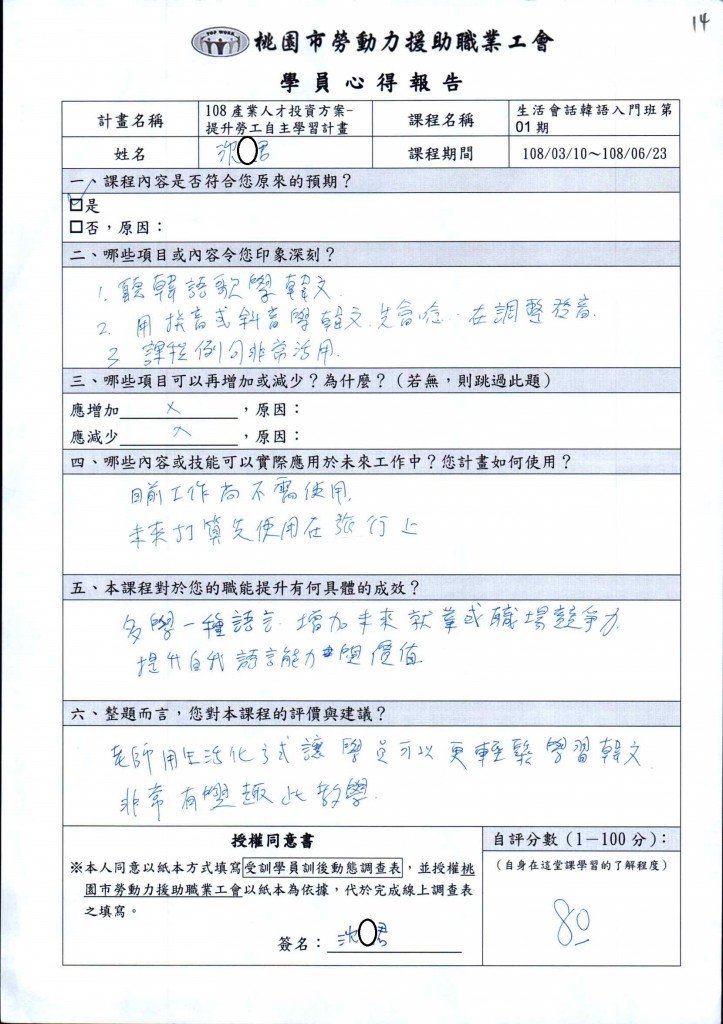 14
TOP WORK
桃園市勞動力援助職業工會
學員心得報告
計畫名稱
108 產業人才投資方案-
提升勞工自主學習計畫
課程名稱
生活會話韓語入門班第
01 期
姓名
沈 君
課程期間
108/03/10～108/06/23
一、課程內容是否符合您原來的預期？
☑是
□否，原因：
二、哪些項目或內容令您印象深刻？
1. 聽韓語歌學韓文.
2. 用拼音式 音學韓文.先會唸..在調整發音.
3. 課程例句非常活用.
三、哪些項目可以再增加或減少？為什麼？（若無，則跳過此題）
應增加 x ，原因：
應減少 x ，原因：
四、哪些內容或技能可以實際應用於未來工作中？您計畫如何使用？
目前工作尚不需使用.
未來打算先使用在旅行上
五、本課程對於您的職能提升有何具體的成效？
多學一種語言.增加未來就業或職場競爭力.
提升自我語言能力與價值
六、整題而言，您對本課程的評價與建議？
老師用生活化方式讓學員可以更輕鬆學習韓文.
非常有興趣此教學.
授權同意書
※本人同意以紙本方式填寫受訓學員訓後動態調查表，並授權桃
園市勞動力援助職業工會以紙本為依據，代於完成線上調查表
之填寫。
簽名：沈 君
自評分數（1－100 分）：
（自身在這堂課學習的了解程度）
80